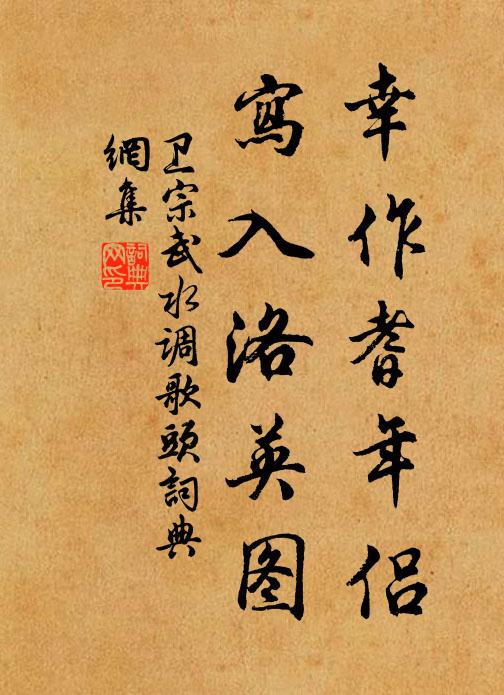 幸作耆年侣
寫入洛英图
卫宗武水调歌頭詞典
網集
詞典
网印